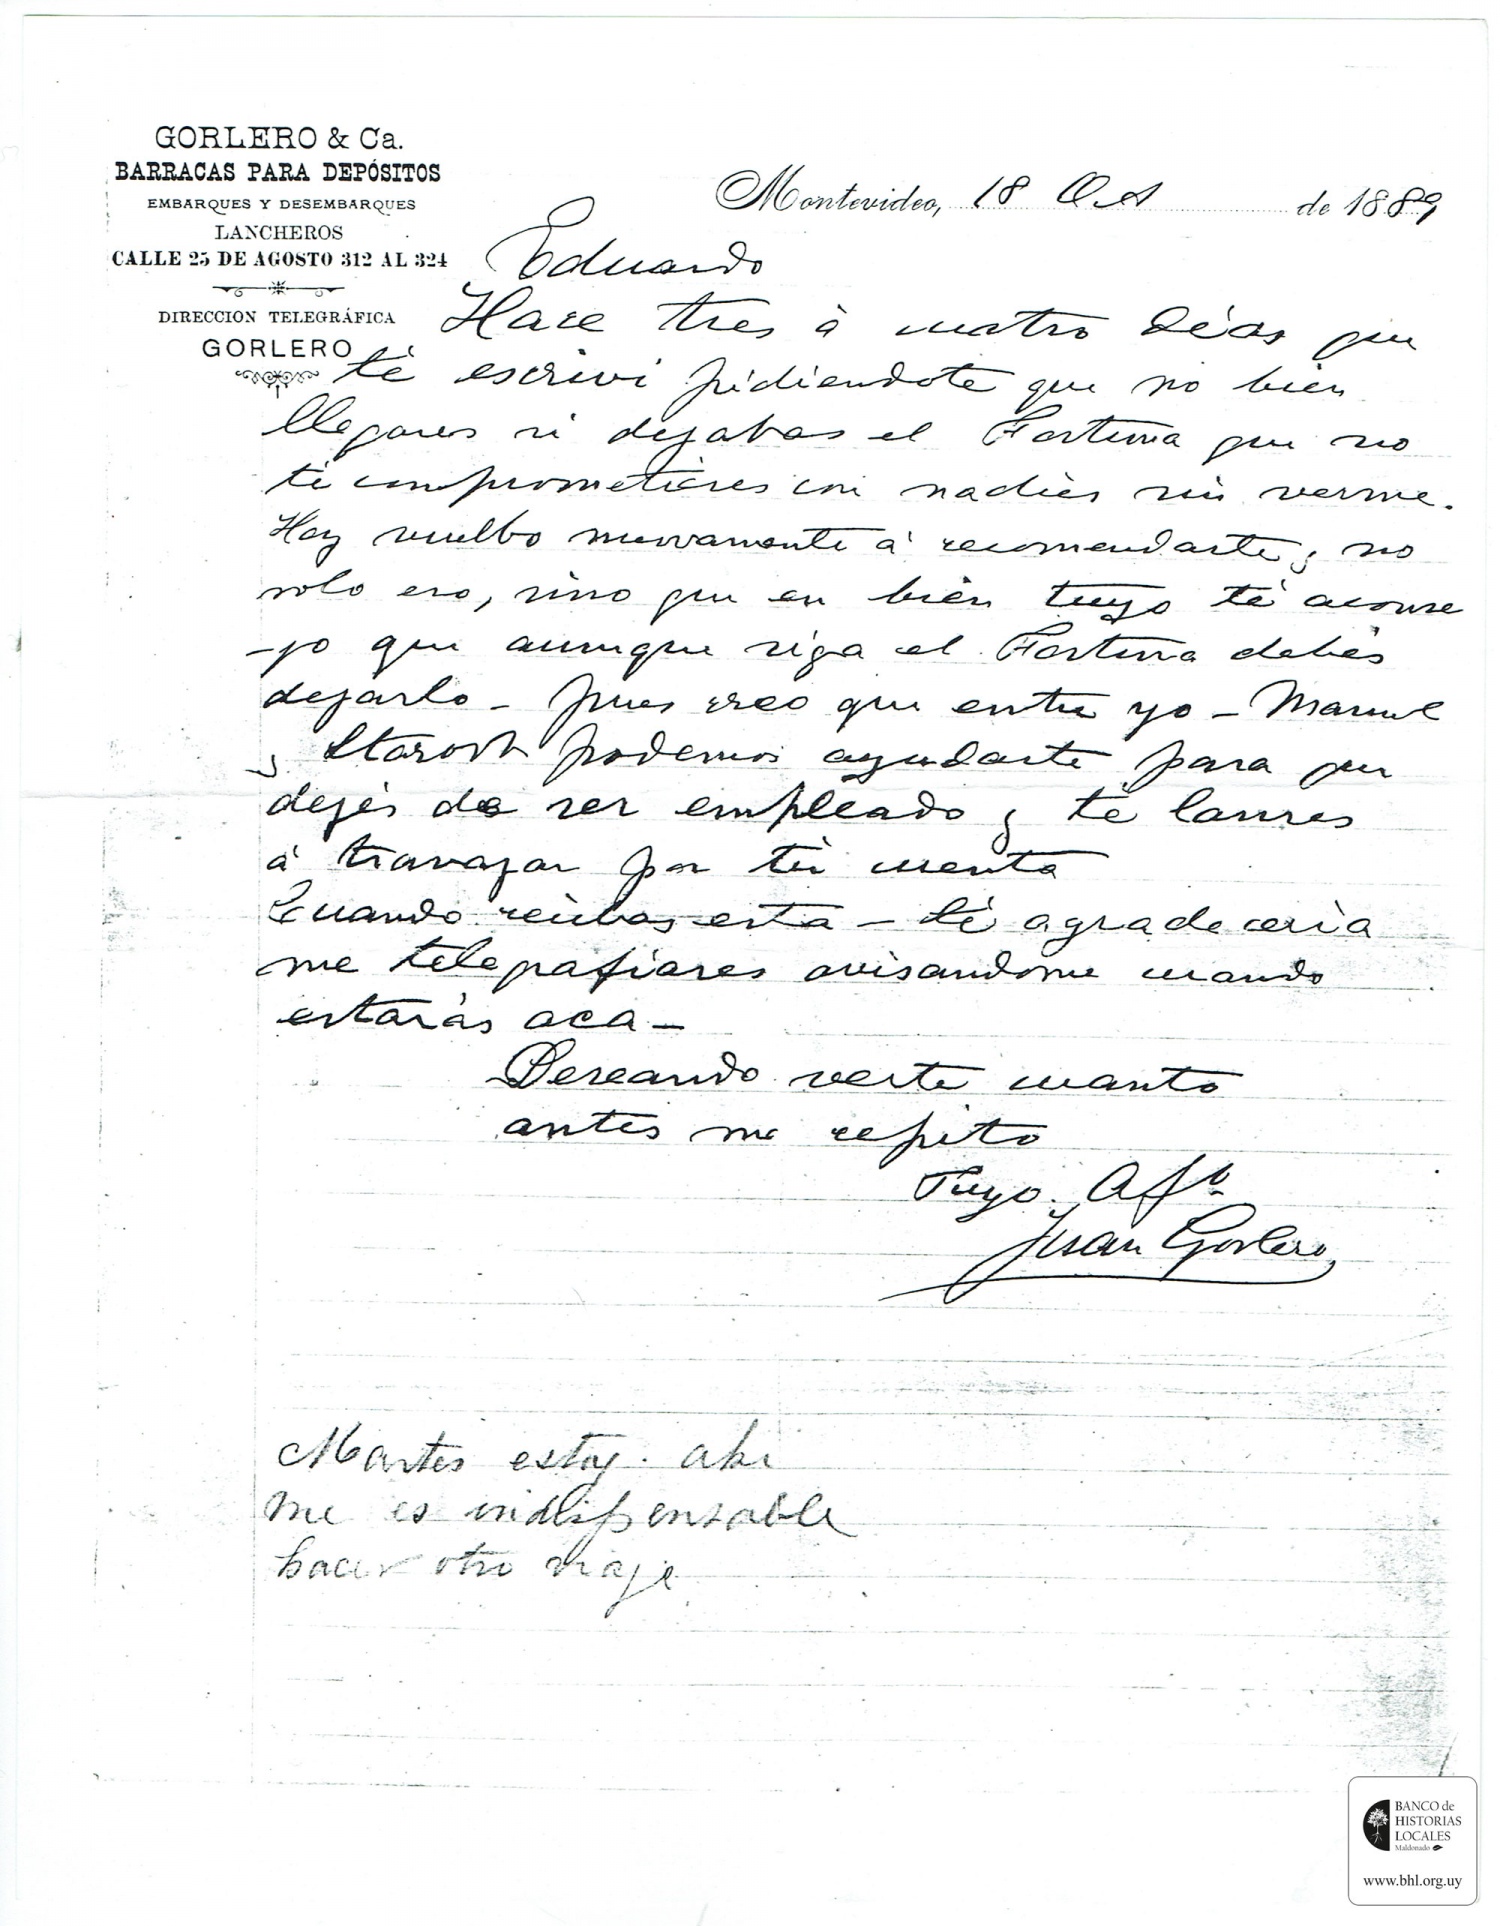 GORLERO & Ca.
BARRACAS PARA DEPÓSITOS
EMBARQUES Y DESEMBARQUES
LANCHEROS
CALLE 25 DE AGOSTO 312 AL 324
DIRECCION TELEGRÁFICA
GORLERO
Montevideo, 18 Oct de 1889
Eduardo
Hace tres à cuatro dias que
té escrivi pidiendote que no bien
llegares si dejabas el Fortuna que no
té comprometieres con nadies sin verme.
Hoy vuelbo nuevamente á recomendarte, no
solo eso, sino que en bien tuyo té aconse
-jo que aunque siga el Fortuna debés
dejarlo - pues creo que entre yo - Manuel
y podemos ayudarte para que
dejés de ser empleado y té lanses
á travajar por tú cuenta
Cuando recibas esta - té agradeceria
me telegrafiares avisandome cuando
estarás aca -
Deseando verte cuanto
antes me repito
Tuyo Afº
Juan Gorlero
Martes estoy ahi
me es indispensable
hacer otro viaje
BANCO de
HISTORIAS
LOCALES
Maldonado
www.bhl.org.uy